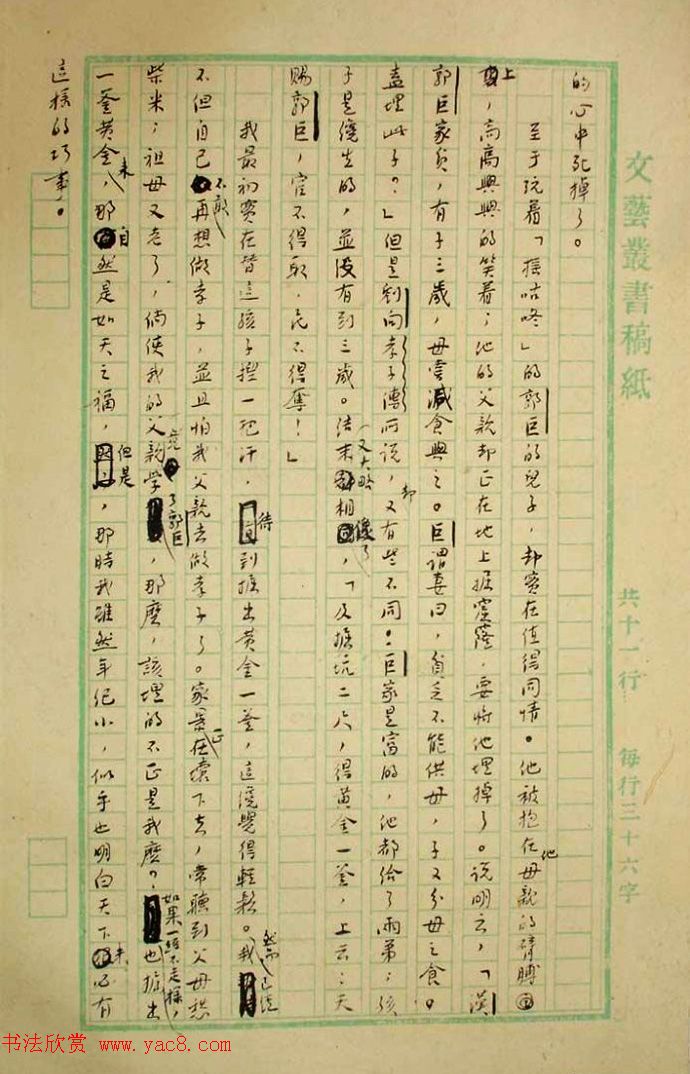 文藝叢書稿紙
共十一行 每行三十六字
的心中死掉了。
至于玩着「搖咕咚」的郭巨的兒子，却實在值得同情。他被抱在他母親的臂膊
上，高高興興的笑着；他的父親却正在地上掘窟窿，要將他埋掉了。說明云，「漢
郭巨家貧，有子三歲，母嘗減食與之。巨謂妻曰，貧乏不能供母，子又分母之食。
盍埋此子？」但是劉向孝子傳所說，却又有些不同：巨家是富的，他都給了兩弟；孩
子是纔生的，並沒有到三歲。結末又大略相像了，「及掘坑二尺，得黃金一釜，上云：天
賜郭巨，官不得取，民不得奪！」
我最初實在替這孩子捏一把汗，待到掘出黃金一釜，這纔覺得輕鬆。然而我已經
不但自己不敢再想做孝子，並且怕我父親去做孝子了。家景正在壞下去，常聽到父母愁
柴米；祖母又老了，倘使我的父親竟學了郭巨，那麽，該埋的不正是我麽？如果一絲不走樣，也掘出
一釜黃金來，那自然是如天之福，但是，那時我雖然年紀小，似乎也明白天下未必有
這樣的巧事。
书法欣赏 www.yac8.com